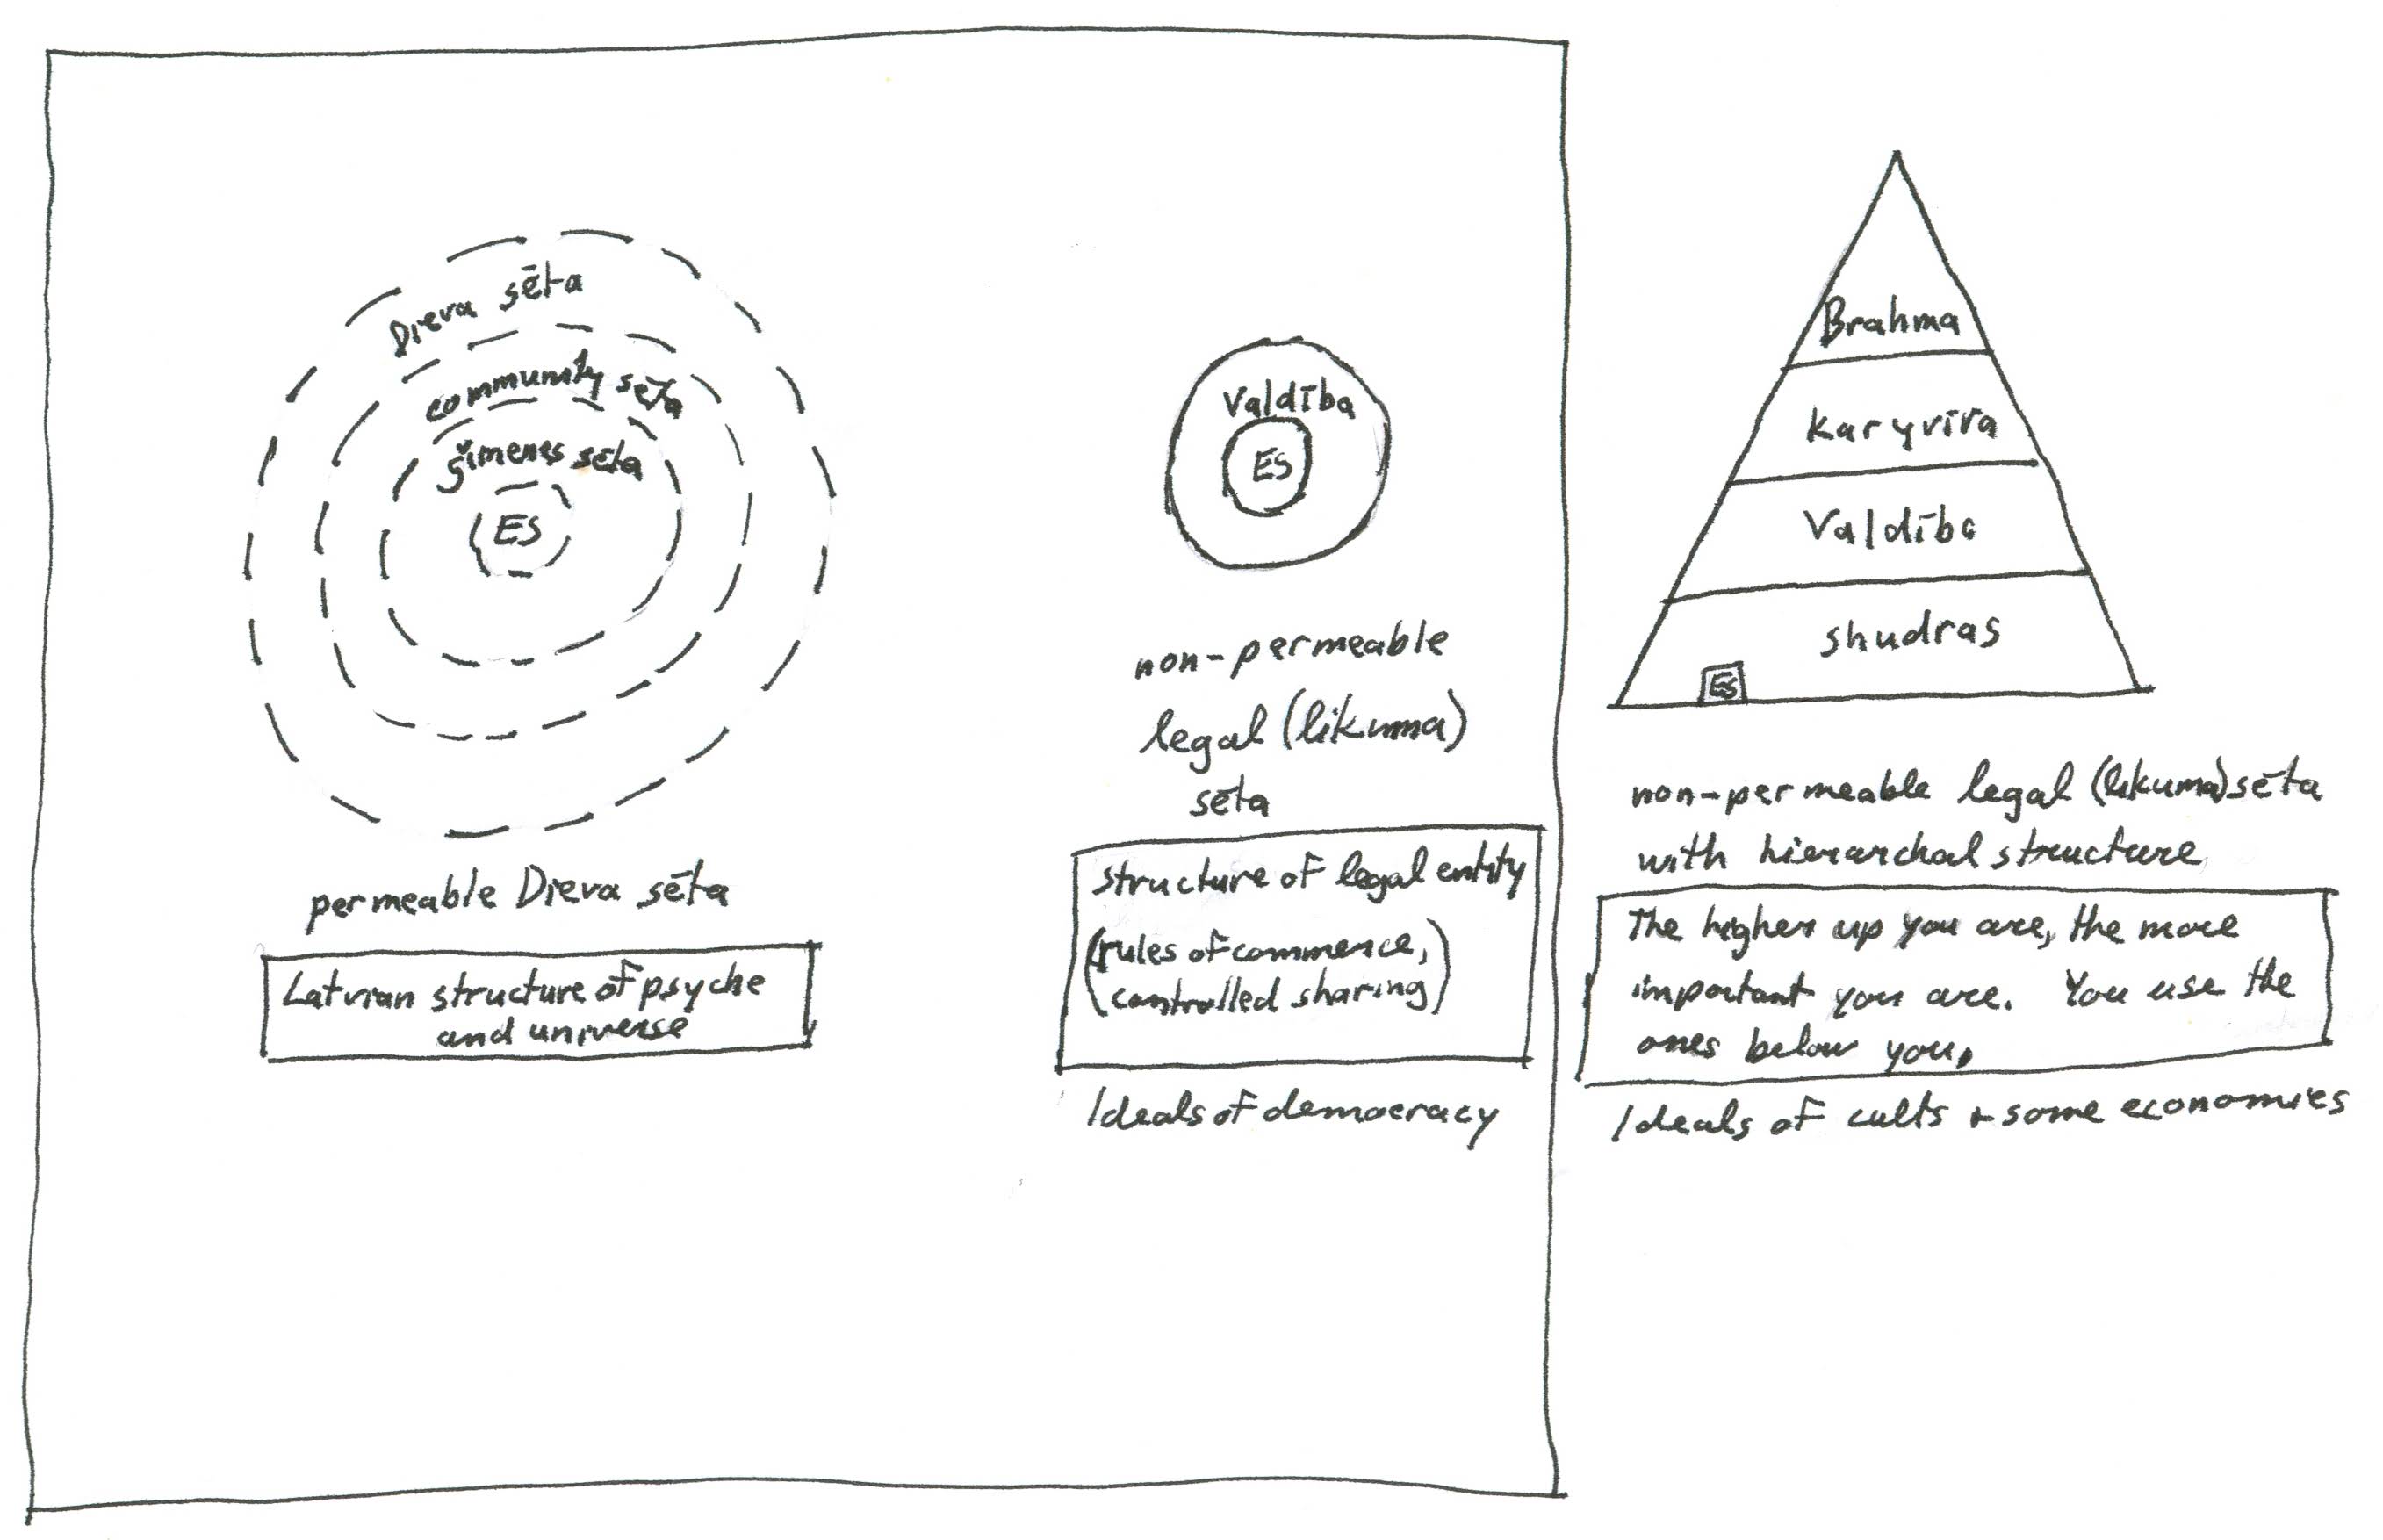 Dieva sēta
community sēta
ģimenes sēta
ES
permeable Dieva sēta
Latvian structure of psyche
and universe
Valdība
ES
non-permeable
legal (likuma)
sēta
structure of legal entity
(rules of commence,
controlled sharing)
Ideals of democracy
Brahma
Karyvīra
Valdība
shudras
ES
non-permeable legal (likuma) sēta
with hierarchal structure
The higher up you are, the more
important you are. You use the
ones below you.
Ideals of cults + some economies